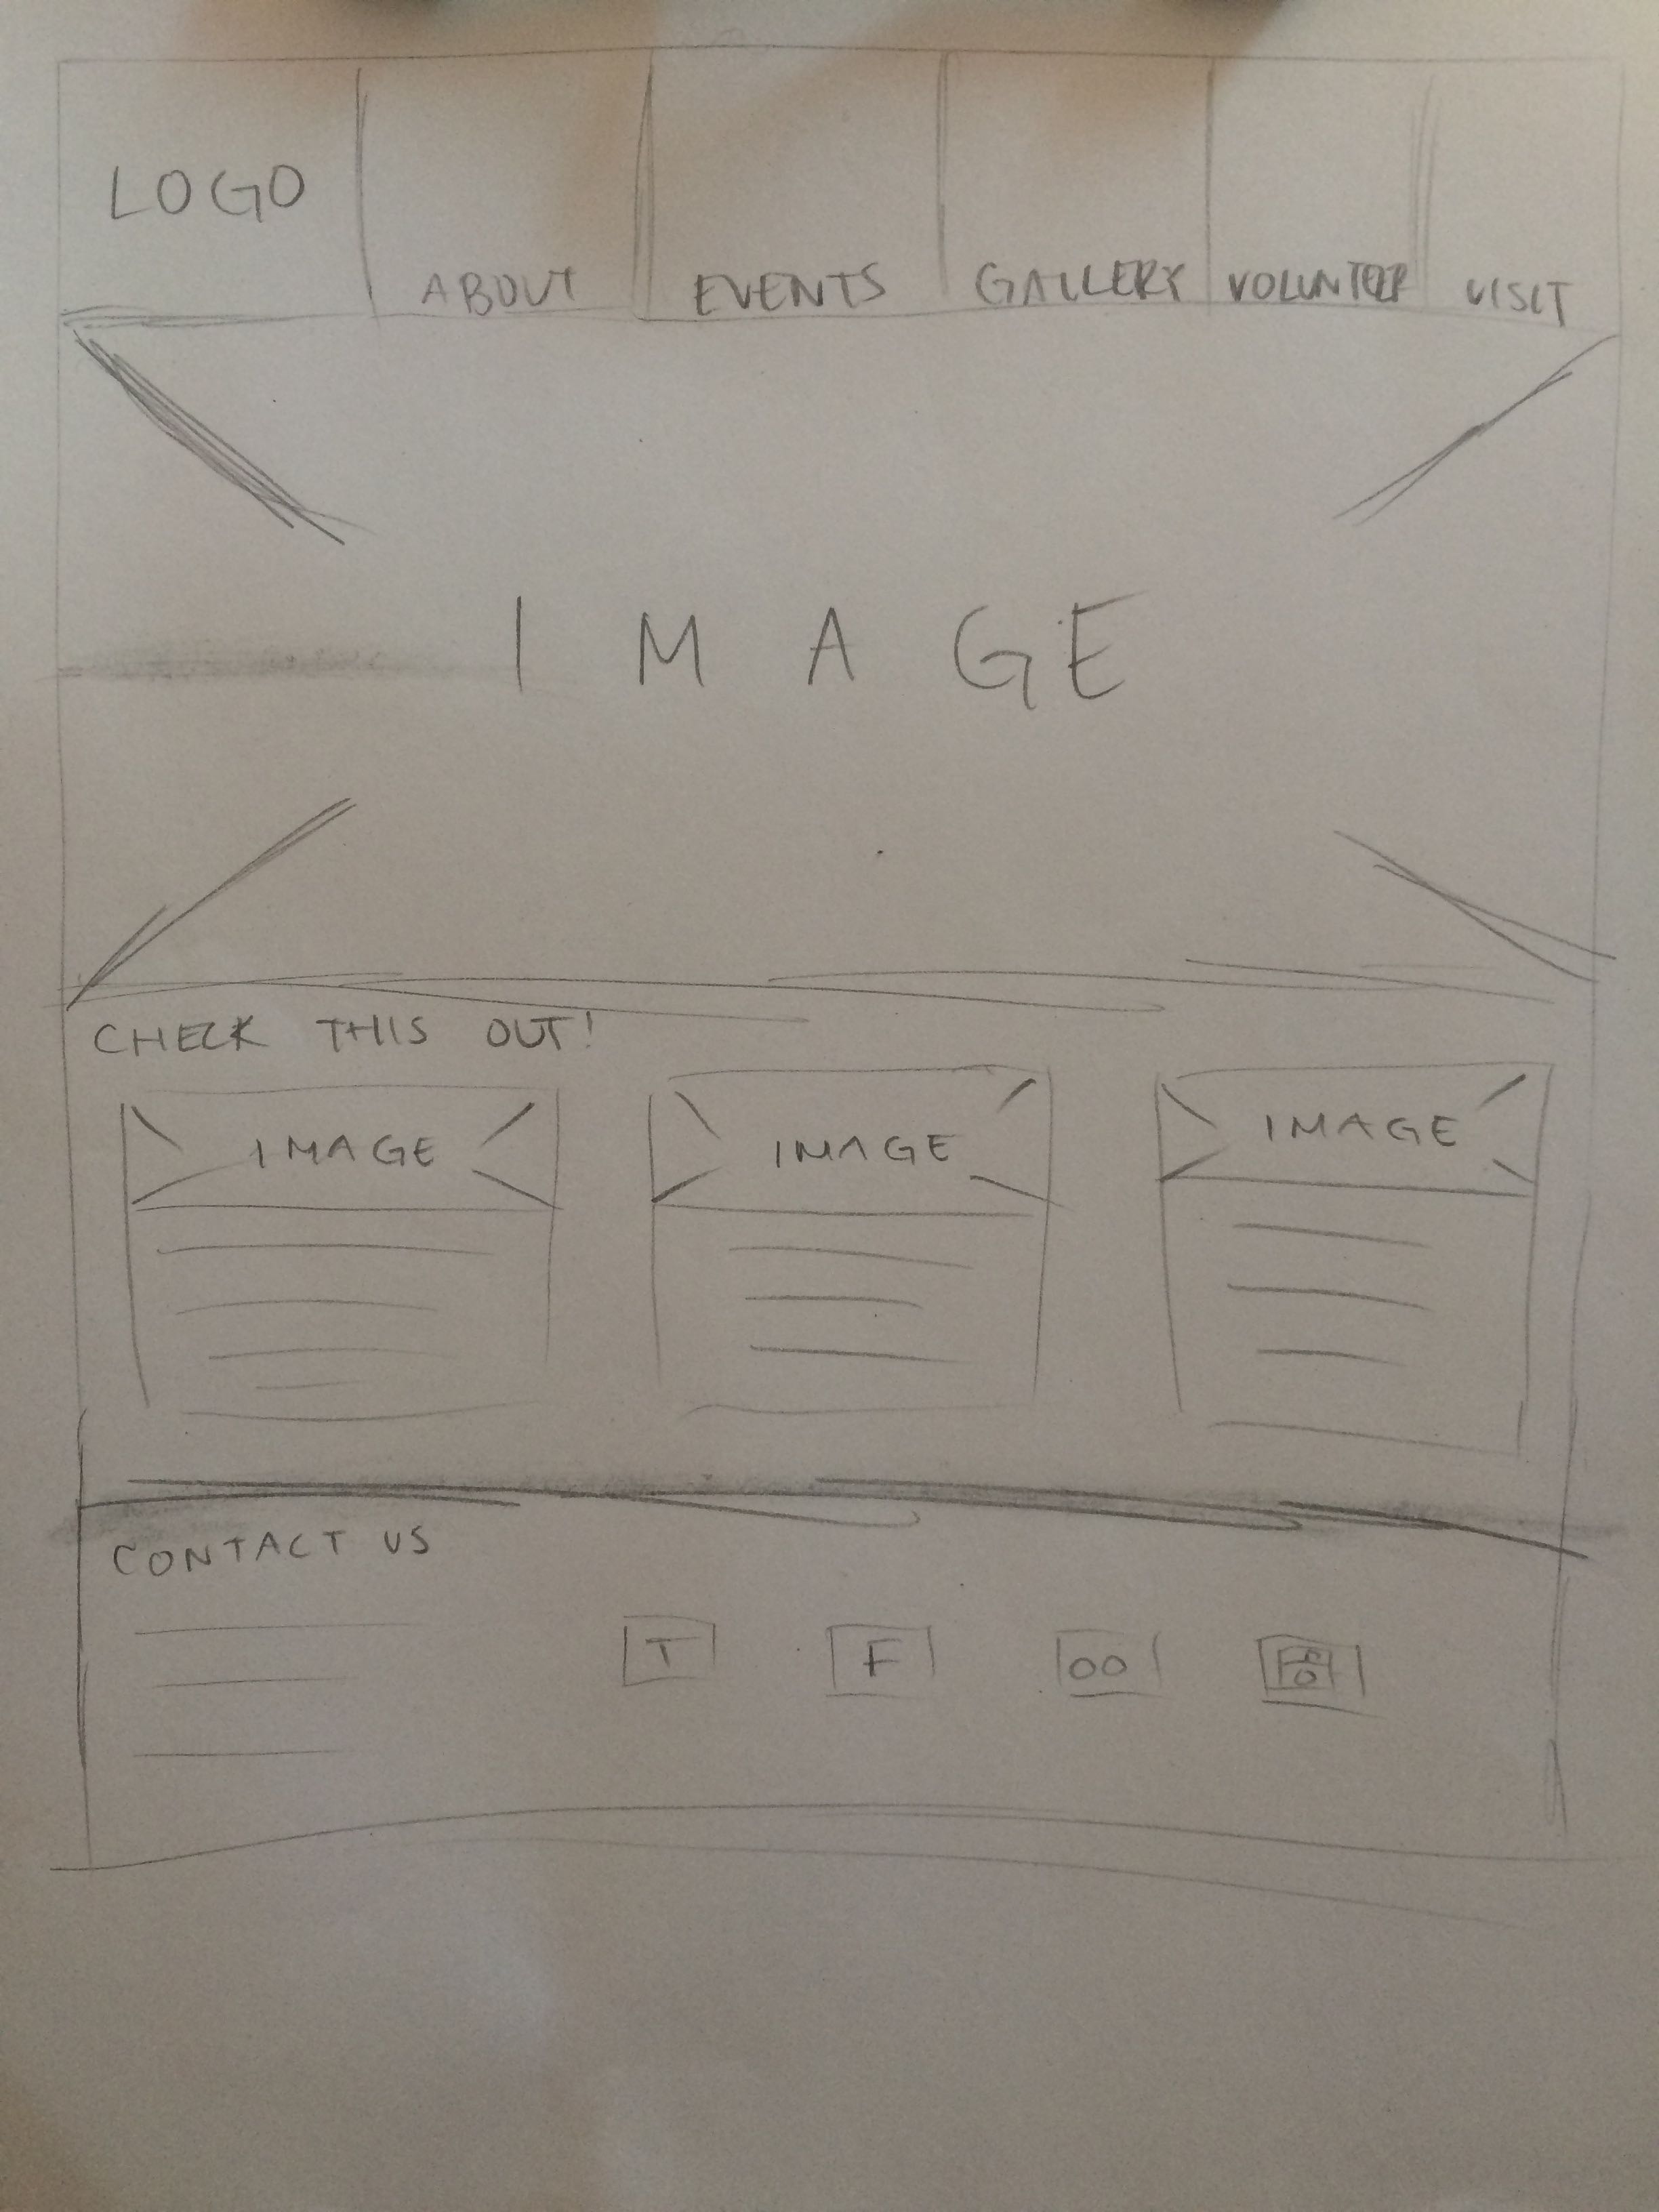 LOGO
ABOUT EVENTS GALLERY VOLUNTEER VISIT
IMAGE
CHECK THIS OUT!
IMAGE IMAGE IMAGE
CONTACT US
T F OO